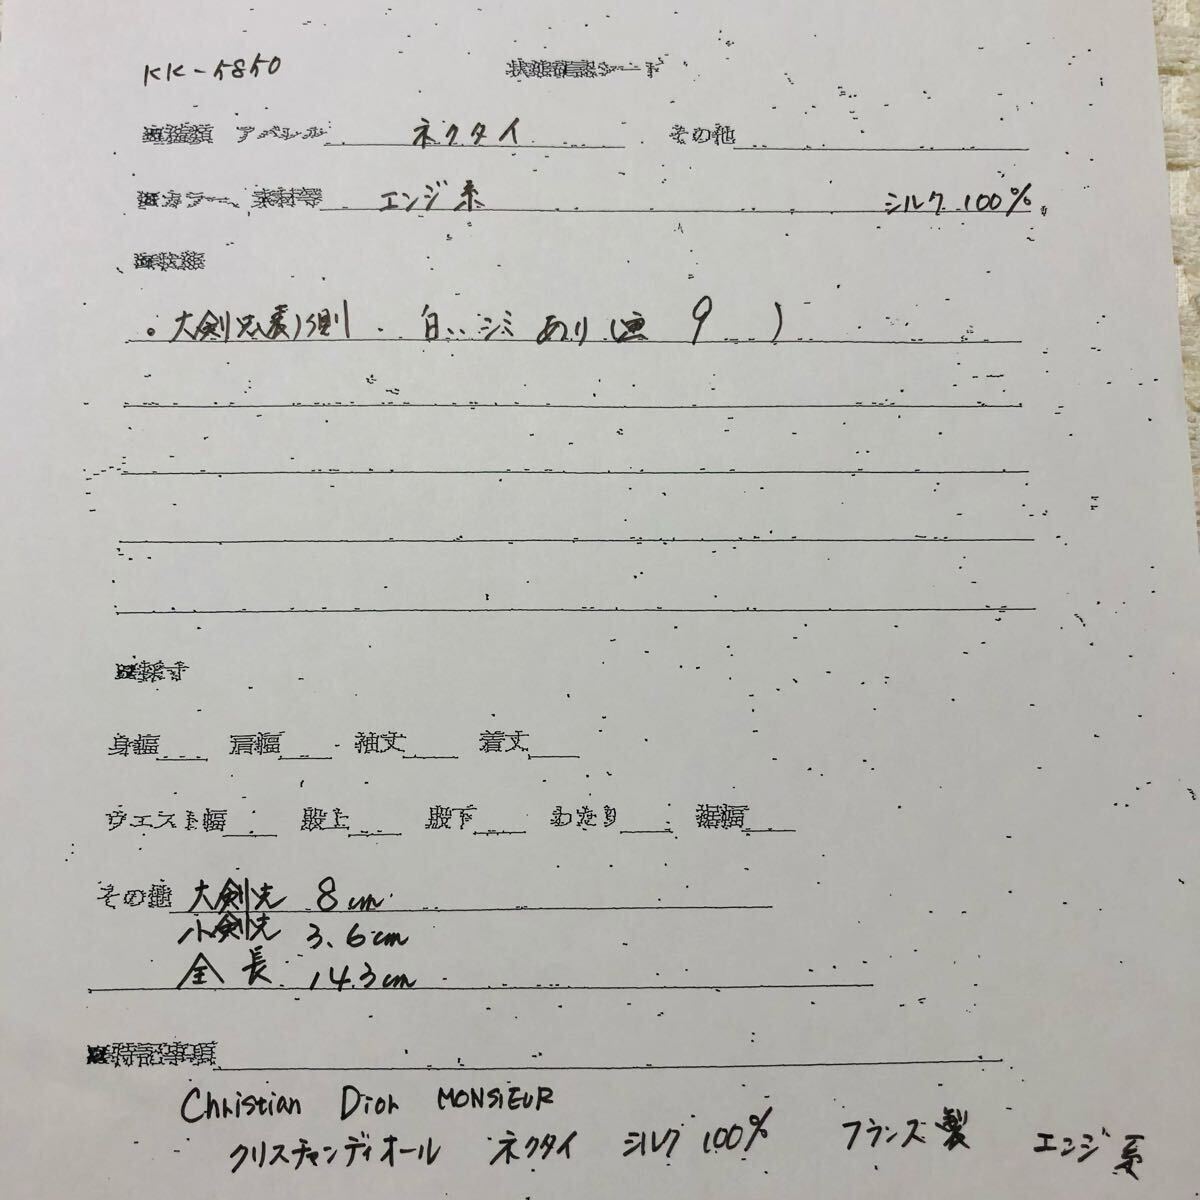 KK-5850 状態確認シート
■種類 アパレル ネクタイ その他
■カラー、素材等 エンジ系 シルク 100%
■状態
。大剣先(表)側 . 白いシミあり (画 9 )
■採寸
身幅 肩幅 袖丈 着丈
ウエスト幅 股上 股下 わたり 裾幅
その他 大剣先 8cm
小剣先 3.6cm
全長 143cm
■特記事項
Christian Dior MONSIEUR
クリスチャンディオール ネクタイ シルク 100% フランス製 エンジ系